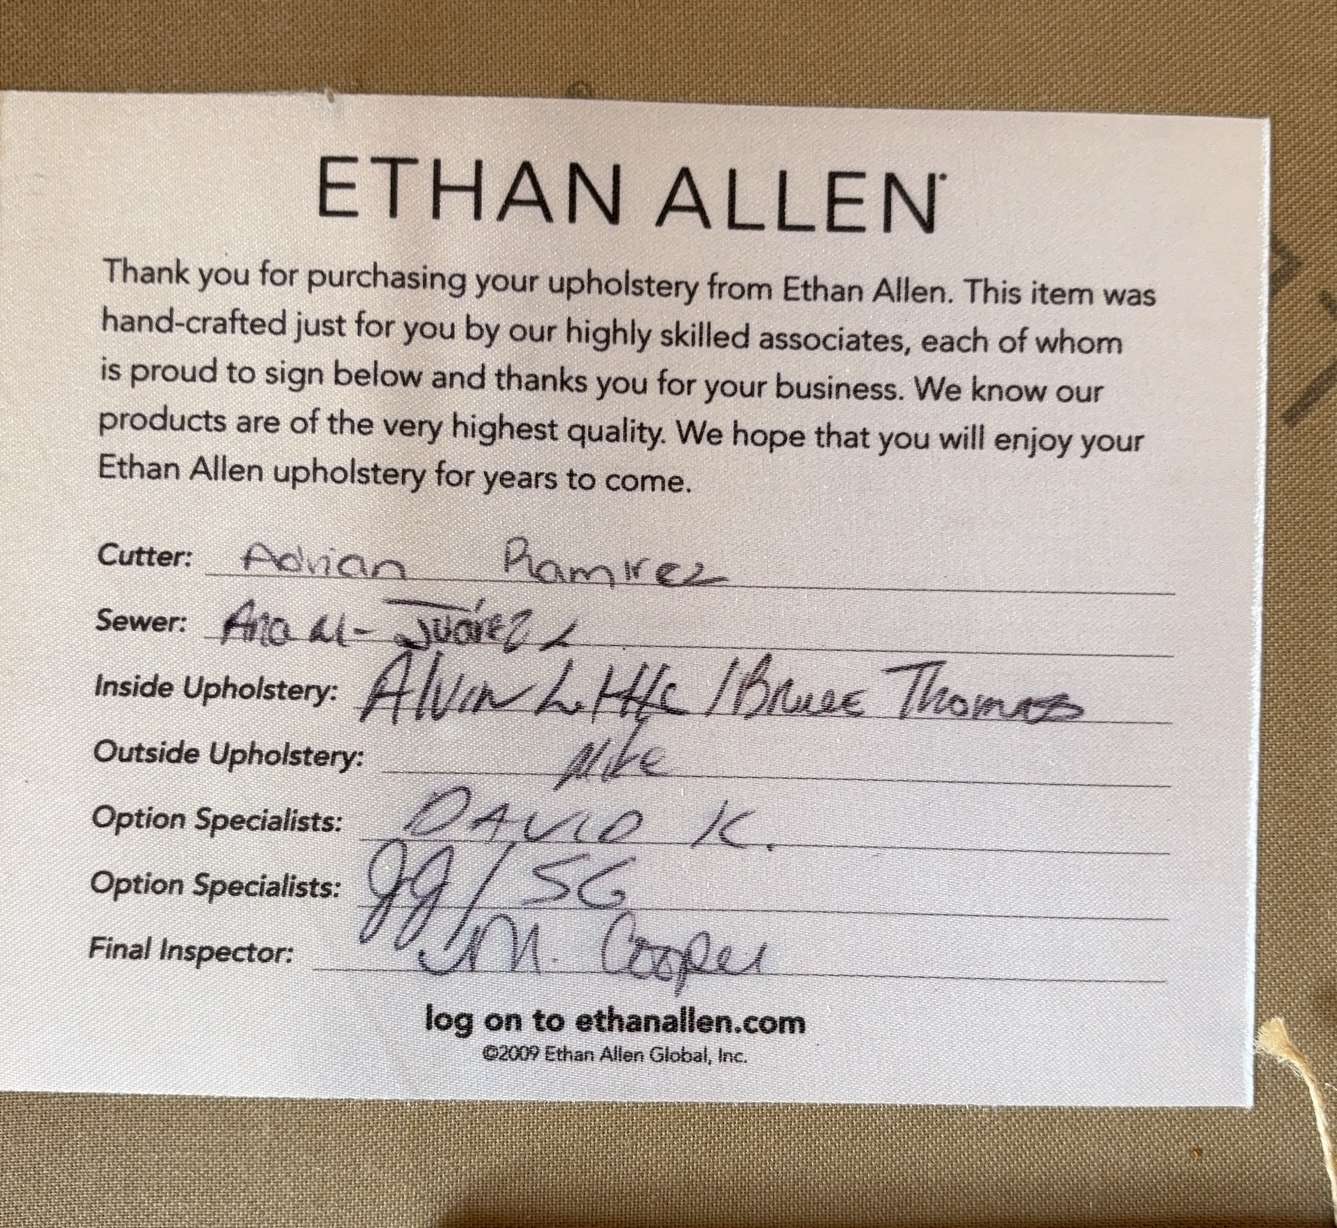 ETHAN ALLEN
Thank you for purchasing your upholstery from Ethan Allen. This item was
hand-crafted just for you by our highly skilled associates, each of whom
is proud to sign below and thanks you for your business. We know our
products are of the very highest quality. We hope that you will enjoy your
Ethan Allen upholstery for years to come.
Cutter: Adrian Ramirez
Sewer: Ana M- Juárez
Inside Upholstery: Alvin Little / Bruce Thomas
Outside Upholstery: Mike
Option Specialists: DAVID K.
Option Specialists: gg / SG
Final Inspector: M. Cooper
log on to ethanallen.com
©2009 Ethan Allen Global, Inc.